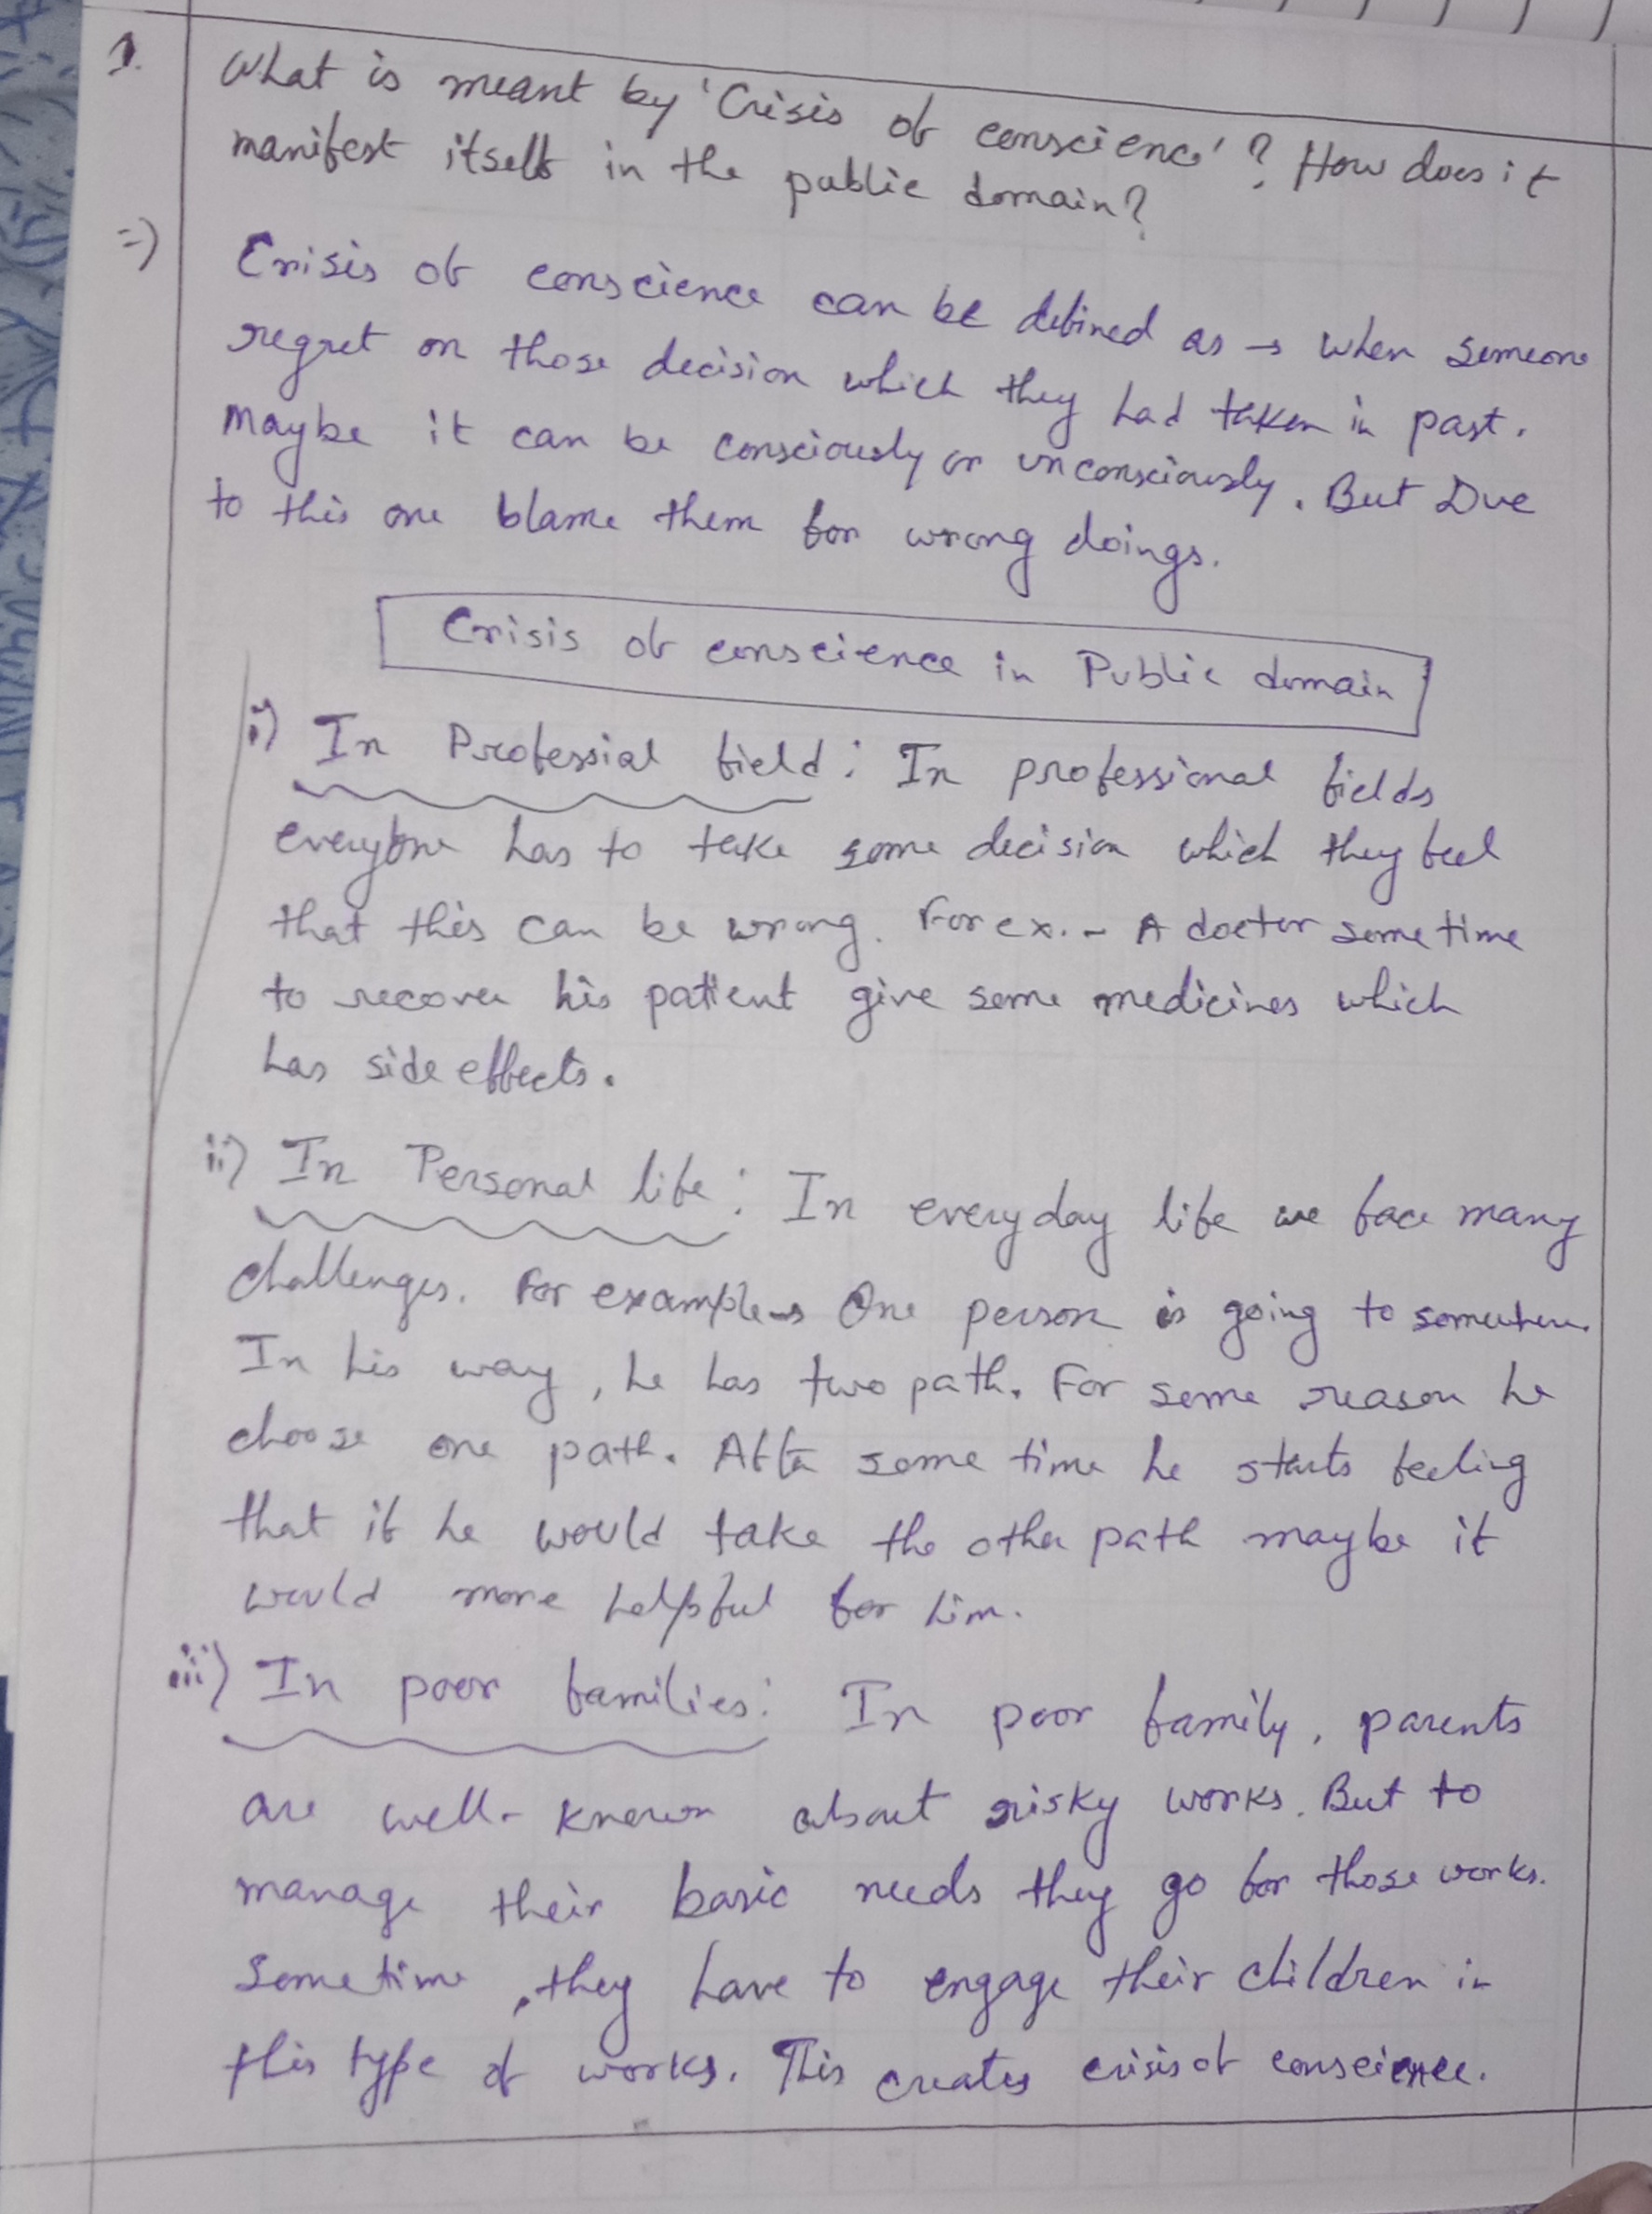 1. What is meant by 'Crisis of conscience'? How does it
manifest itself in the public domain?
=) Crisis of conscience can be defined as → when someone
regret on those decision which they had taken in past.
Maybe it can be consciously or unconsciously. But Due
to this one blame them for wrong doings.
Crisis of conscience in Public domain
i) In Professial field: In professional fields
everyone has to take some decision which they feel
that this can be wrong. For ex. - A doctor sometime
to recover his patient give some medicines which
has side effects.
ii) In Personal life: In everyday life we face many
challenges. For example → One person is going to somewhere.
In his way, he has two path. For some reason he
choose one path. After some time he starts feeling
that if he would take the other path maybe it
would more helpful for him.
iii) In poor families: In poor family, parents
are well-known about risky works. But to
manage their basic needs they go for those works.
Sometime, they have to engage their children in
this type of works. This creates crisis of conscience.